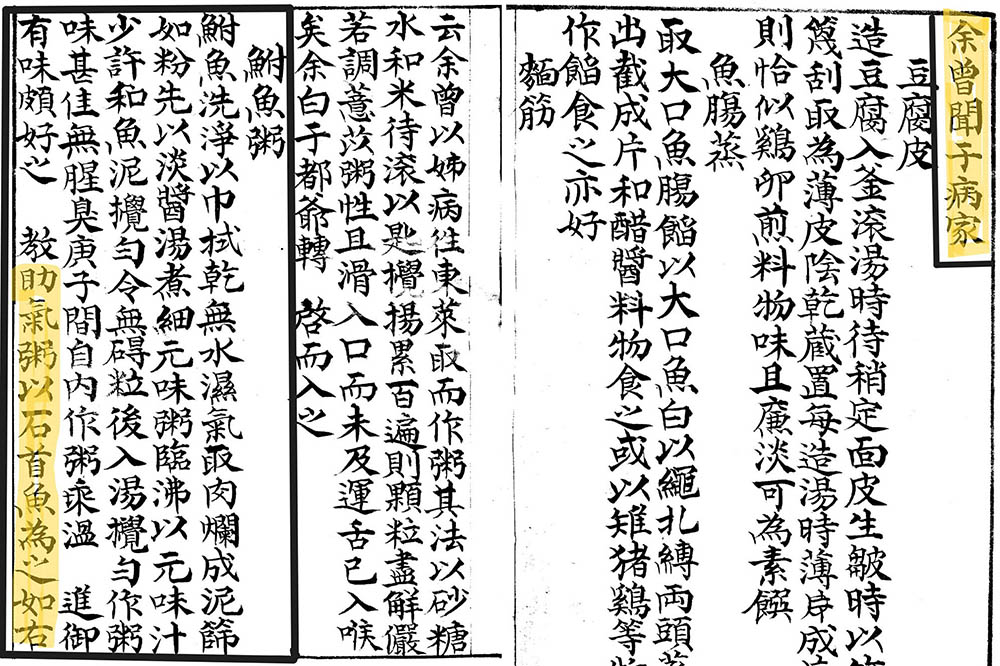 余曾聞于病家
豆腐皮
造豆腐入釜滾湯時待稍定面皮生皺時以
篾刮取為薄皮陰乾蔵置每造湯時薄戶成
則恰似鷄卵煎料物味且廉淡可為素饌
魚腸蒸
取大口魚腸餡以大口魚白以繩扎縛両頭
出截成片和醋醬料物食之或以雉猪鷄等
作餡食之亦好
麵筋
云余曾以姊病往東萊取而作粥其法以砂糖
水和米待滚以匙攪揚累百遍則顆粒盡解儼
若調薏苡粥性且滑入口而未及運舌已入喉
矣余白于都爺轉 啓而入之
鮒魚粥
鮒魚洗淨以巾拭乾無水濕氣取肉爛成泥篩
如粉先以淡醬湯煮細元味粥臨沸以元味汁
少許和魚泥攪勻令無碍粒後入湯攪勻作粥
味甚佳無腥臭庚子間自内作粥乘溫 進御
有味頗好之 教助氣粥以石首魚為之如右